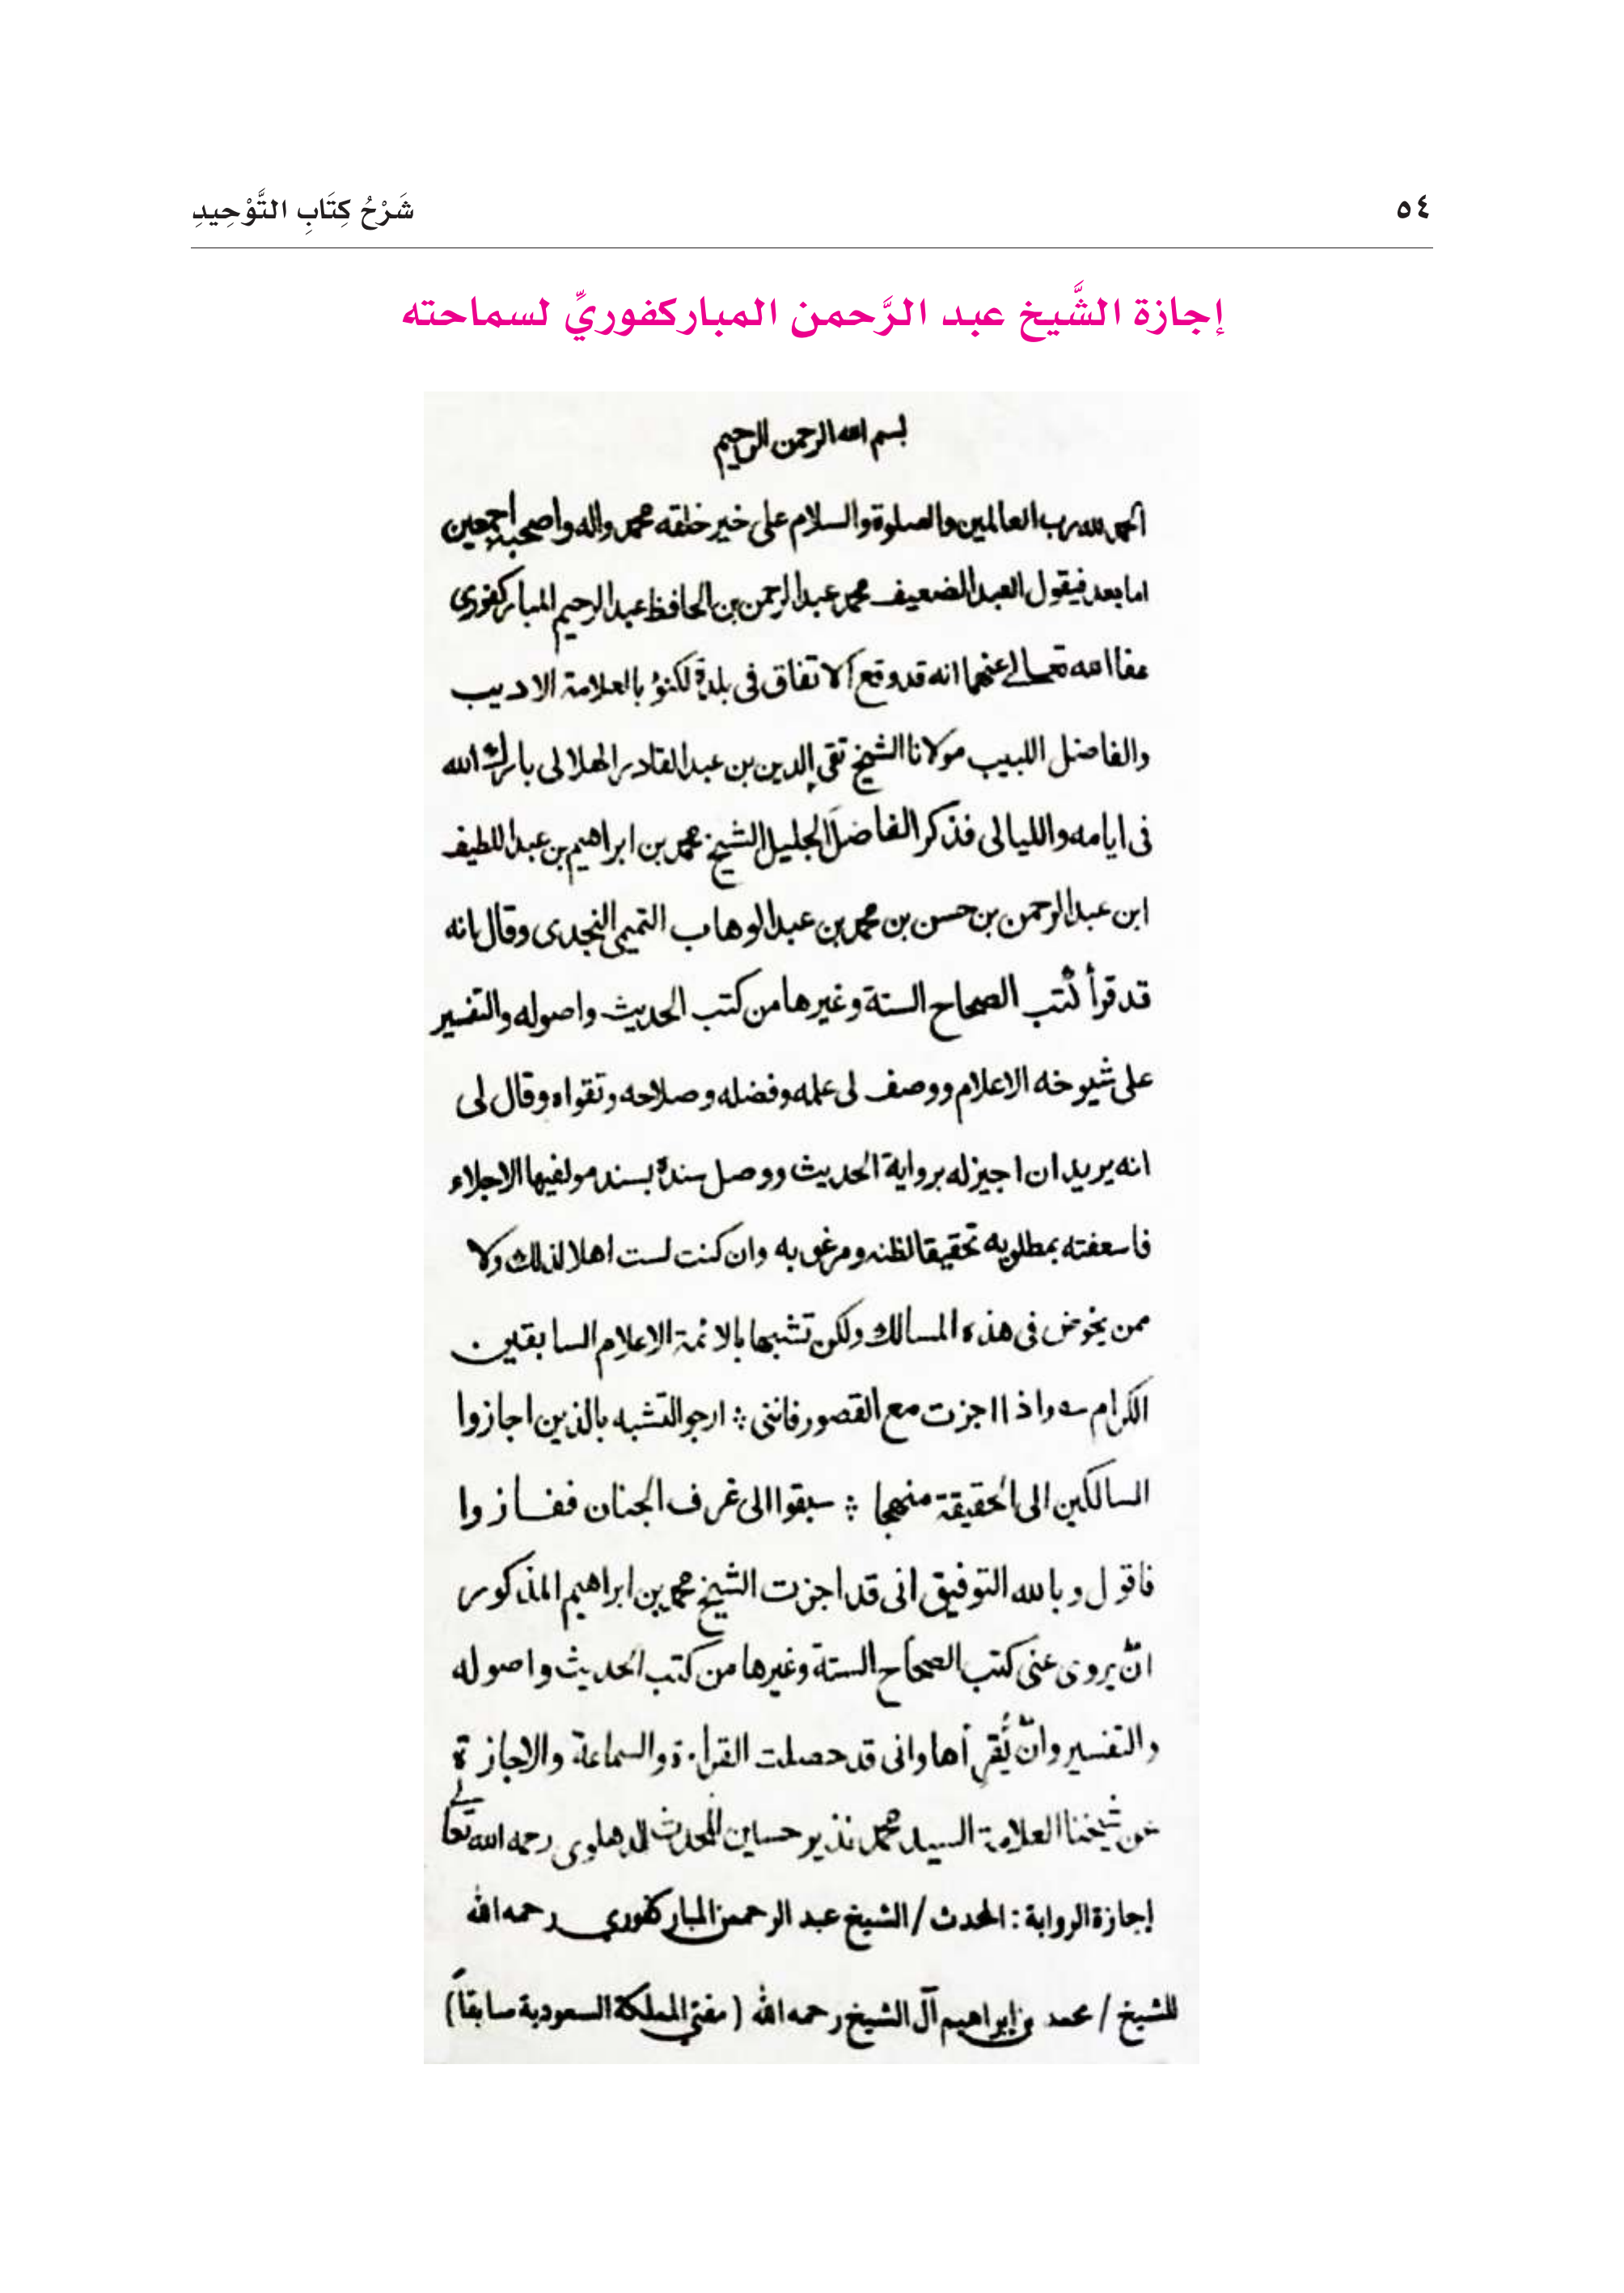 ٥٤
شَرْحُ كِتَابِ التَّوْحِيدِ
إجازة الشَّيخ عبد الرَّحمن المباركفوريِّ لسماحته
بسم الله الرحمن الرحيم
الحمد لله رب العالمين والصلوة والسلام على خير خلقه محمد واله واصحبه اجمعين
اما بعد فيقول العبد الضعيف محمد عبد الرحمن بن الحافظ عبد الرحيم المباركفوري
عفا الله تعالے عنهما انه قد وقع الاتفاق فى بلدة لكنؤ بالعلامة الاديب
والفاضل اللبيب مولانا الشيخ تقي الدين بن عبد القادر الهلالى بارك الله
فى ايامه والليالى فذكر الفاضل الجليل الشيخ محمد بن ابراهيم بن عبد اللطيف
ابن عبد الرحمن بن حسن بن محمد بن عبد الوهاب التميمي النجدى وقال بانه
قد قرأ كُتب الصحاح الستة وغيرها من كتب الحديث واصوله والتفسير
على شيوخه الاعلام ووصف لى علمه وفضله وصلاحه وتقواه وقال لى
انه يريد ان اجيز له برواية الحديث ووصل سنده بسند مولفيها الاجلاء
فاسعفته بمطلوبه تحقيقا لظنه ومرغوبه وان كنت لست اهلا لذلك ولا
ممن يخوض فى هذه المسالك ولكن تشبها بالائمة الاعلام السابقين
الكرام ؎ واذا اجزت مع القصور فاننى ؞ ارجو التشبه بالذين اجازوا
السالكين الى الحقيقة منهجا ؞ سبقوا الى غرف الجنان ففازوا
فاقول وبالله التوفيق انى قد اجزت الشيخ محمد بن ابراهيم المذكور
انْ يروى عنى كتب الصحاح الستة وغيرها من كتب الحديث واصوله
والتفسير وانْ يُقرِأها وانى قد حصلت القراءة والسماعة والاجازة
عن شيخنا العلامة السيد محمد نذير حسين المحدث الدهلوى رحمه الله تعالے
إجازة الرواية : المحدث / الشيخ عبد الرحمن المباركفوري رحمه الله
للشيخ / محمد بن إبراهيم آل الشيخ رحمه الله ( مفتي المملكة السعودية سابقاً )